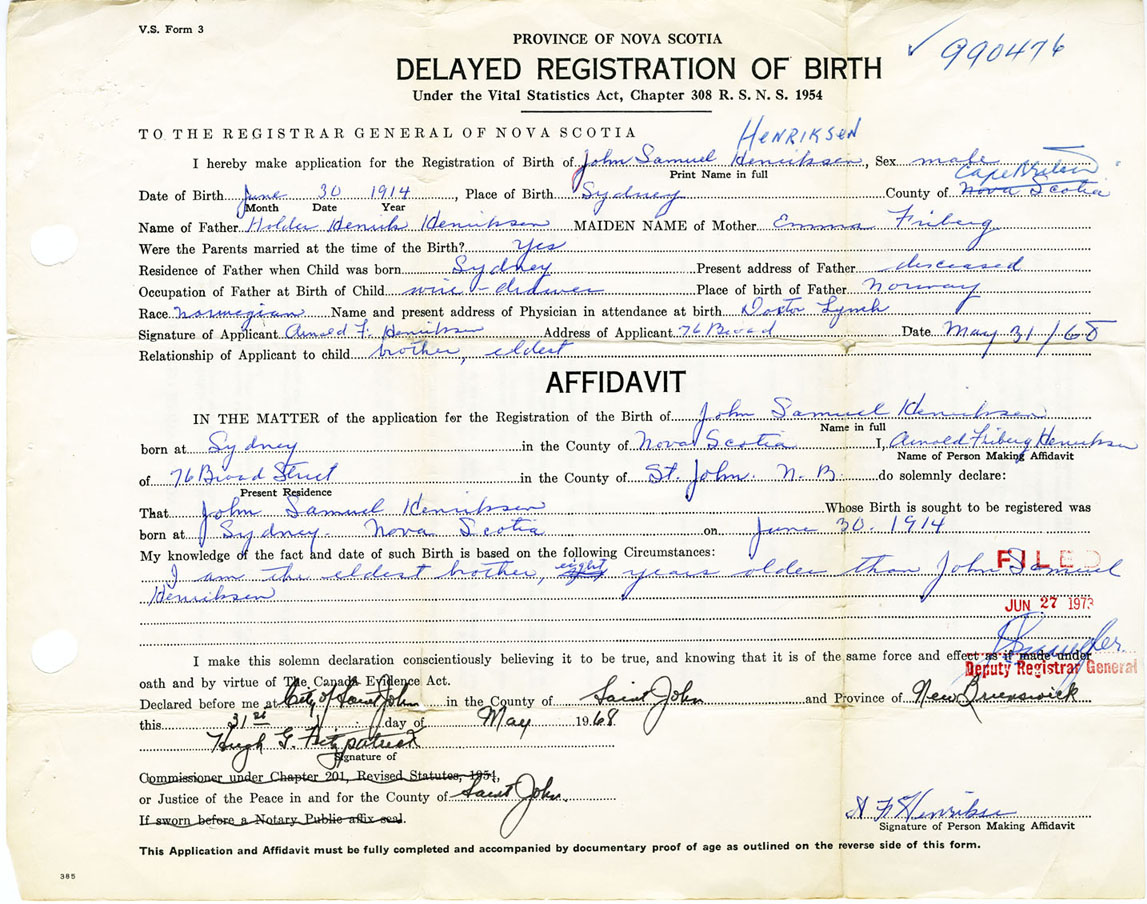 V.S. Form 3
PROVINCE OF NOVA SCOTIA
✓ 990476
DELAYED REGISTRATION OF BIRTH
Under the Vital Statistics Act, Chapter 308 R. S. N. S. 1954
TO THE REGISTRAR GENERAL OF NOVA SCOTIA
HENRIKSEN
I hereby make application for the Registration of Birth of John Samuel Henriksen, Sex male
Print Name in full
Cape Breton
Date of Birth June 30 1914, Place of Birth Sydney County of Nova Scotia
Month Date Year
Name of Father Holder Henrik Henriksen MAIDEN NAME of Mother Emma Friberg
Were the Parents married at the time of the Birth? Yes
Residence of Father when Child was born Sydney Present address of Father disceased
Occupation of Father at Birth of Child wire-drawer Place of birth of Father Norway
Race Norwegian Name and present address of Physician in attendance at birth Doctor Lynch
Signature of Applicant Arnold F. Henriksen Address of Applicant 76 Broad Date May 31/68
Relationship of Applicant to child brother, eldest
AFFIDAVIT
IN THE MATTER of the application for the Registration of the Birth of John Samuel Henriksen
Name in full
born at Sydney in the County of Nova Scotia I, Arnold Friberg Henriksen
Name of Person Making Affidavit
of 76 Broad Street in the County of St. John. N. B. do solemnly declare:
Present Residence
That John Samuel Henriksen Whose Birth is sought to be registered was
born at Sydney. Nova Scotia on June 30. 1914
My knowledge of the fact and date of such Birth is based on the following Circumstances:
I am the eldest brother, eight years older than John Samuel
Henriksen
FILED
JUN 27 1973
I make this solemn declaration conscientiously believing it to be true, and knowing that it is of the same force and effect as if made under
Deputy Registrar General
oath and by virtue of The Canada Evidence Act.
Declared before me at City of Saint John in the County of Saint John and Province of New Brunswick
this 31st day of May 1968
Hugh G. Fitzpatrick
Signature of
Commissioner under Chapter 201, Revised Statutes, 1954,
or Justice of the Peace in and for the County of Saint John.
If sworn before a Notary Public affix seal.
A F Henriksen
Signature of Person Making Affidavit
This Application and Affidavit must be fully completed and accompanied by documentary proof of age as outlined on the reverse side of this form.
385